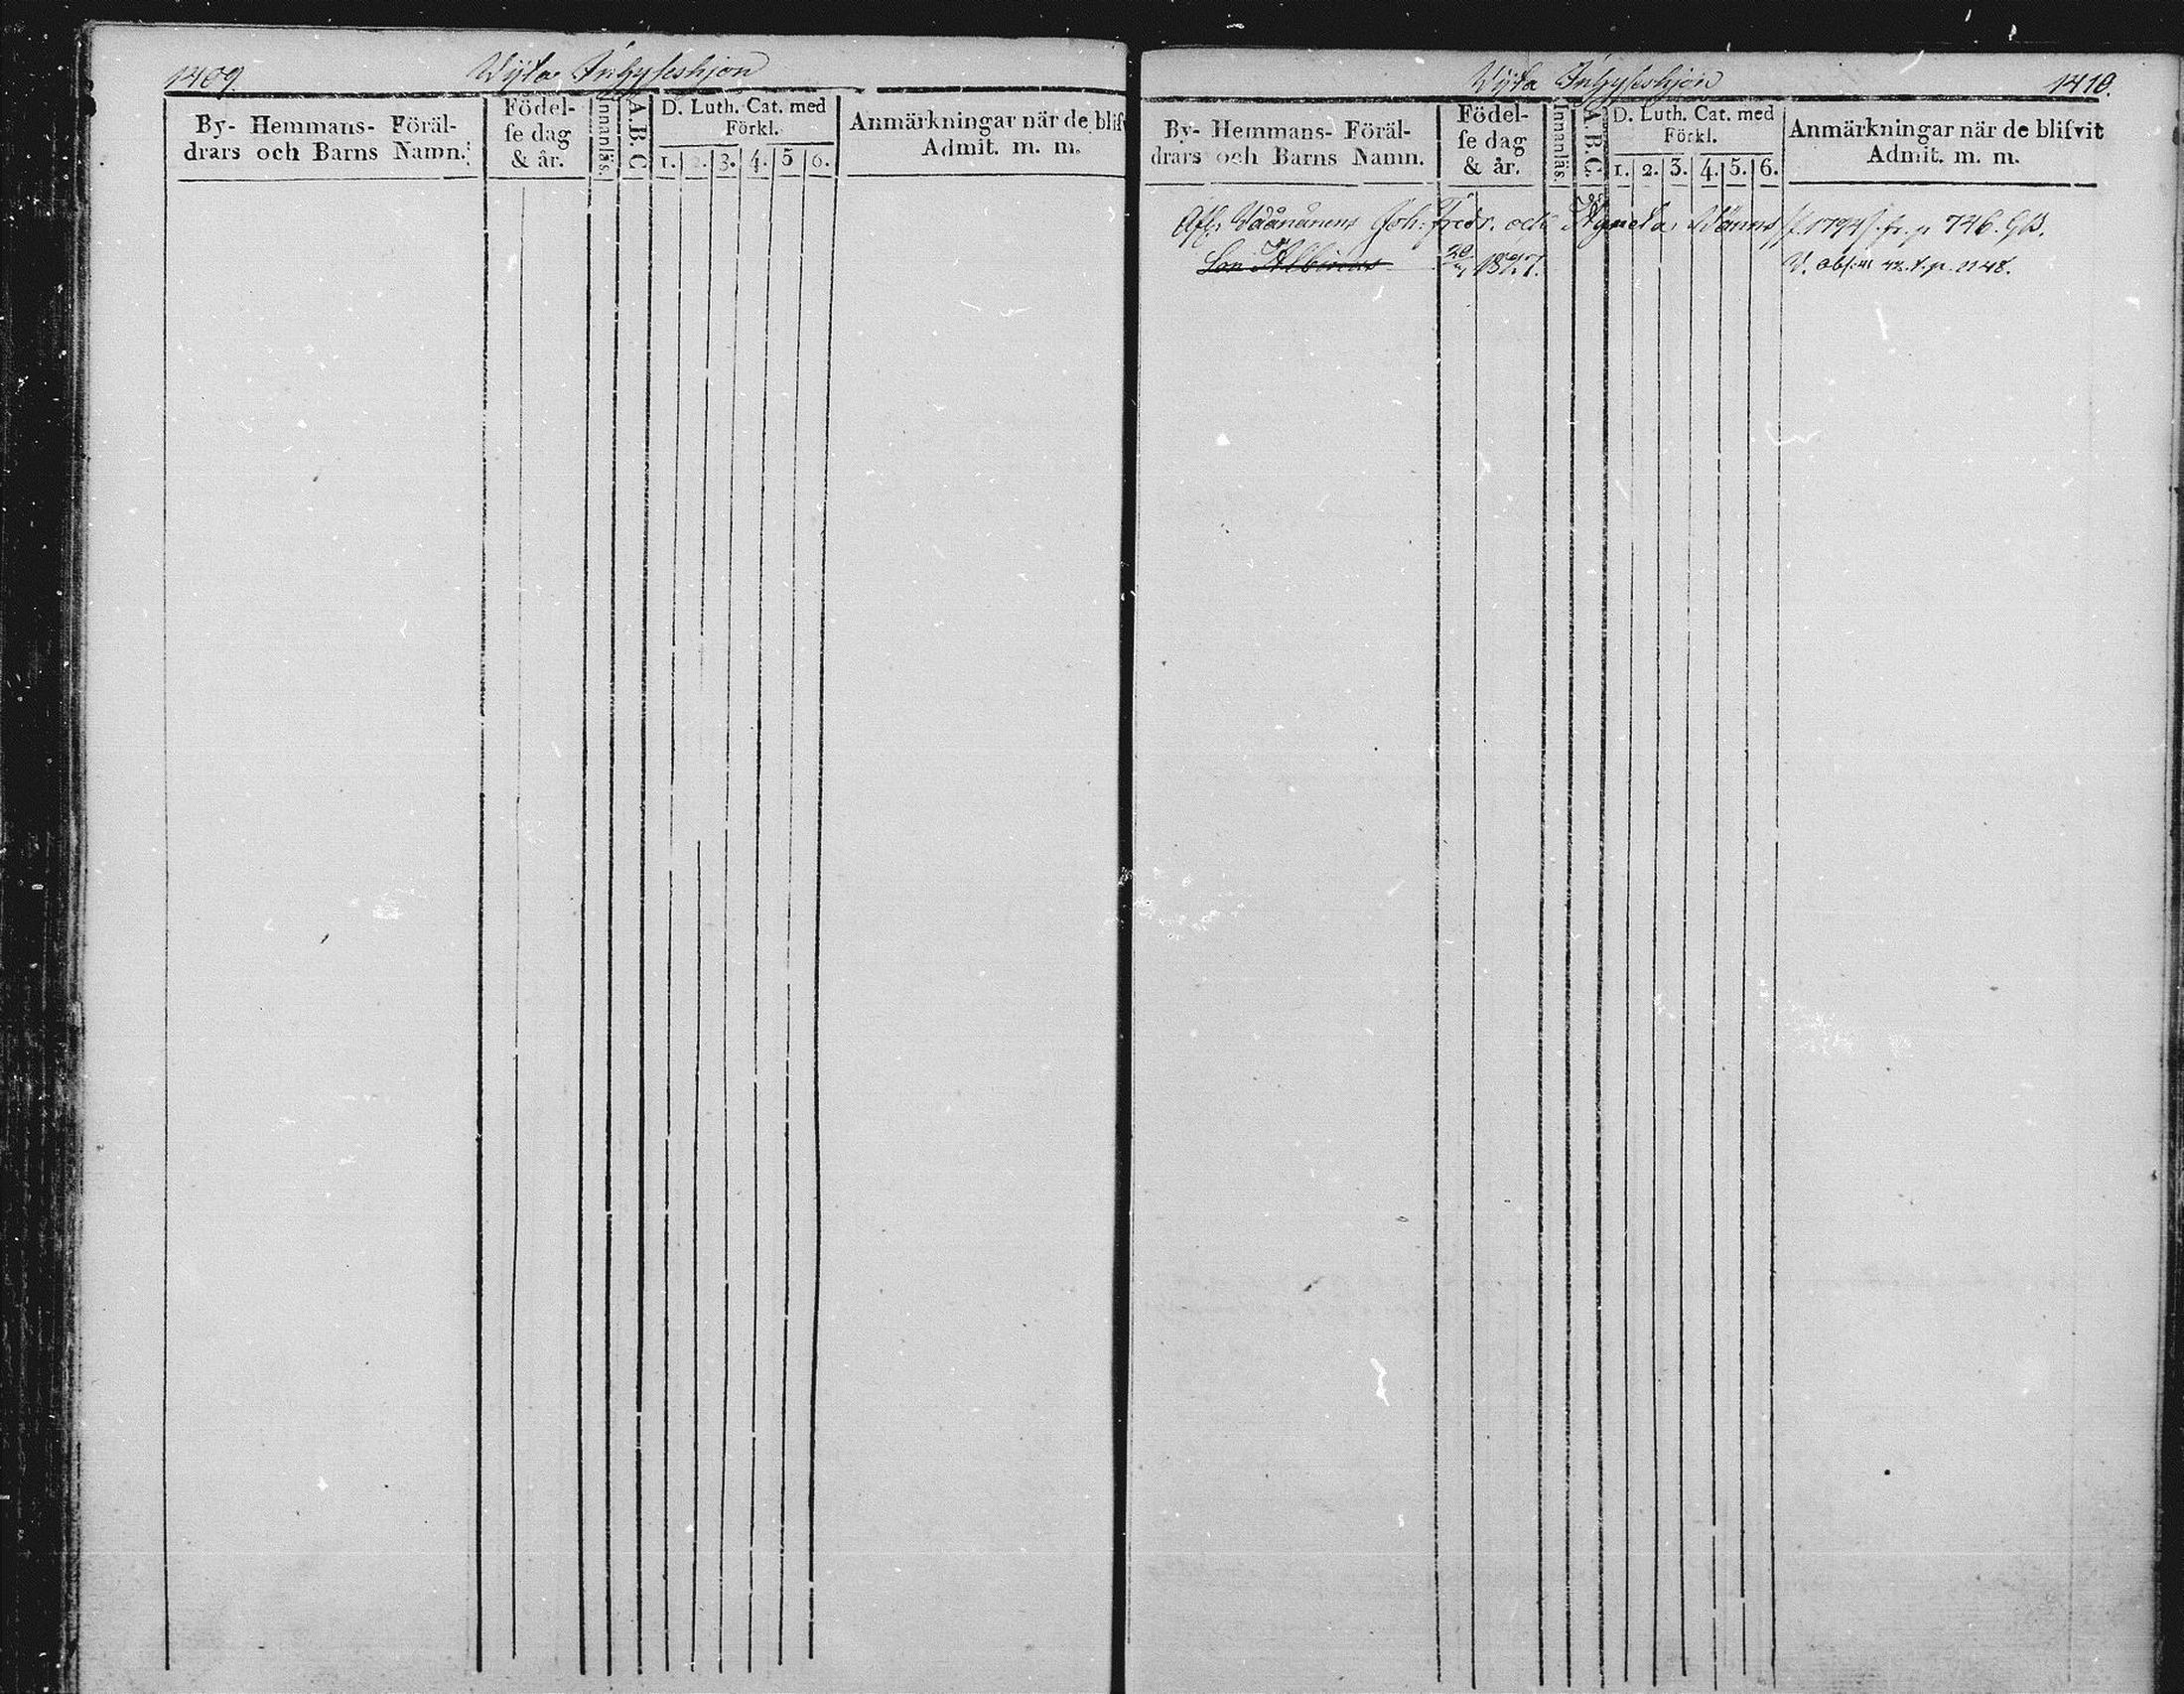 1409.
Wyta Inhyseshjon
By- Hemmans- Föräl-
drars och Barns Namn.
Födel-
se dag
& år.
Innanläs.
A.B.C
D. Luth. Cat. med
Förkl.
1. 2. 3. 4. 5 6.
Anmärkningar när de blifv
Admit. m. m.
Wyta Inhyseshjon
1410.
By- Hemmans- Föräl-
drars och Barns Namn.
Födel-
se dag
& år.
Innanläs.
A.B.C.
D. Luth. Cat. med
Förkl.
1. 2. 3. 4. 5. 6.
Anmärkningar när de blifvit
Admit. m. m.
Afl. Väänänens Joh: Fredr. och Agneta f. 1794 fr. p 746. GB.
Son Albinus 1827. V. p. 1148.